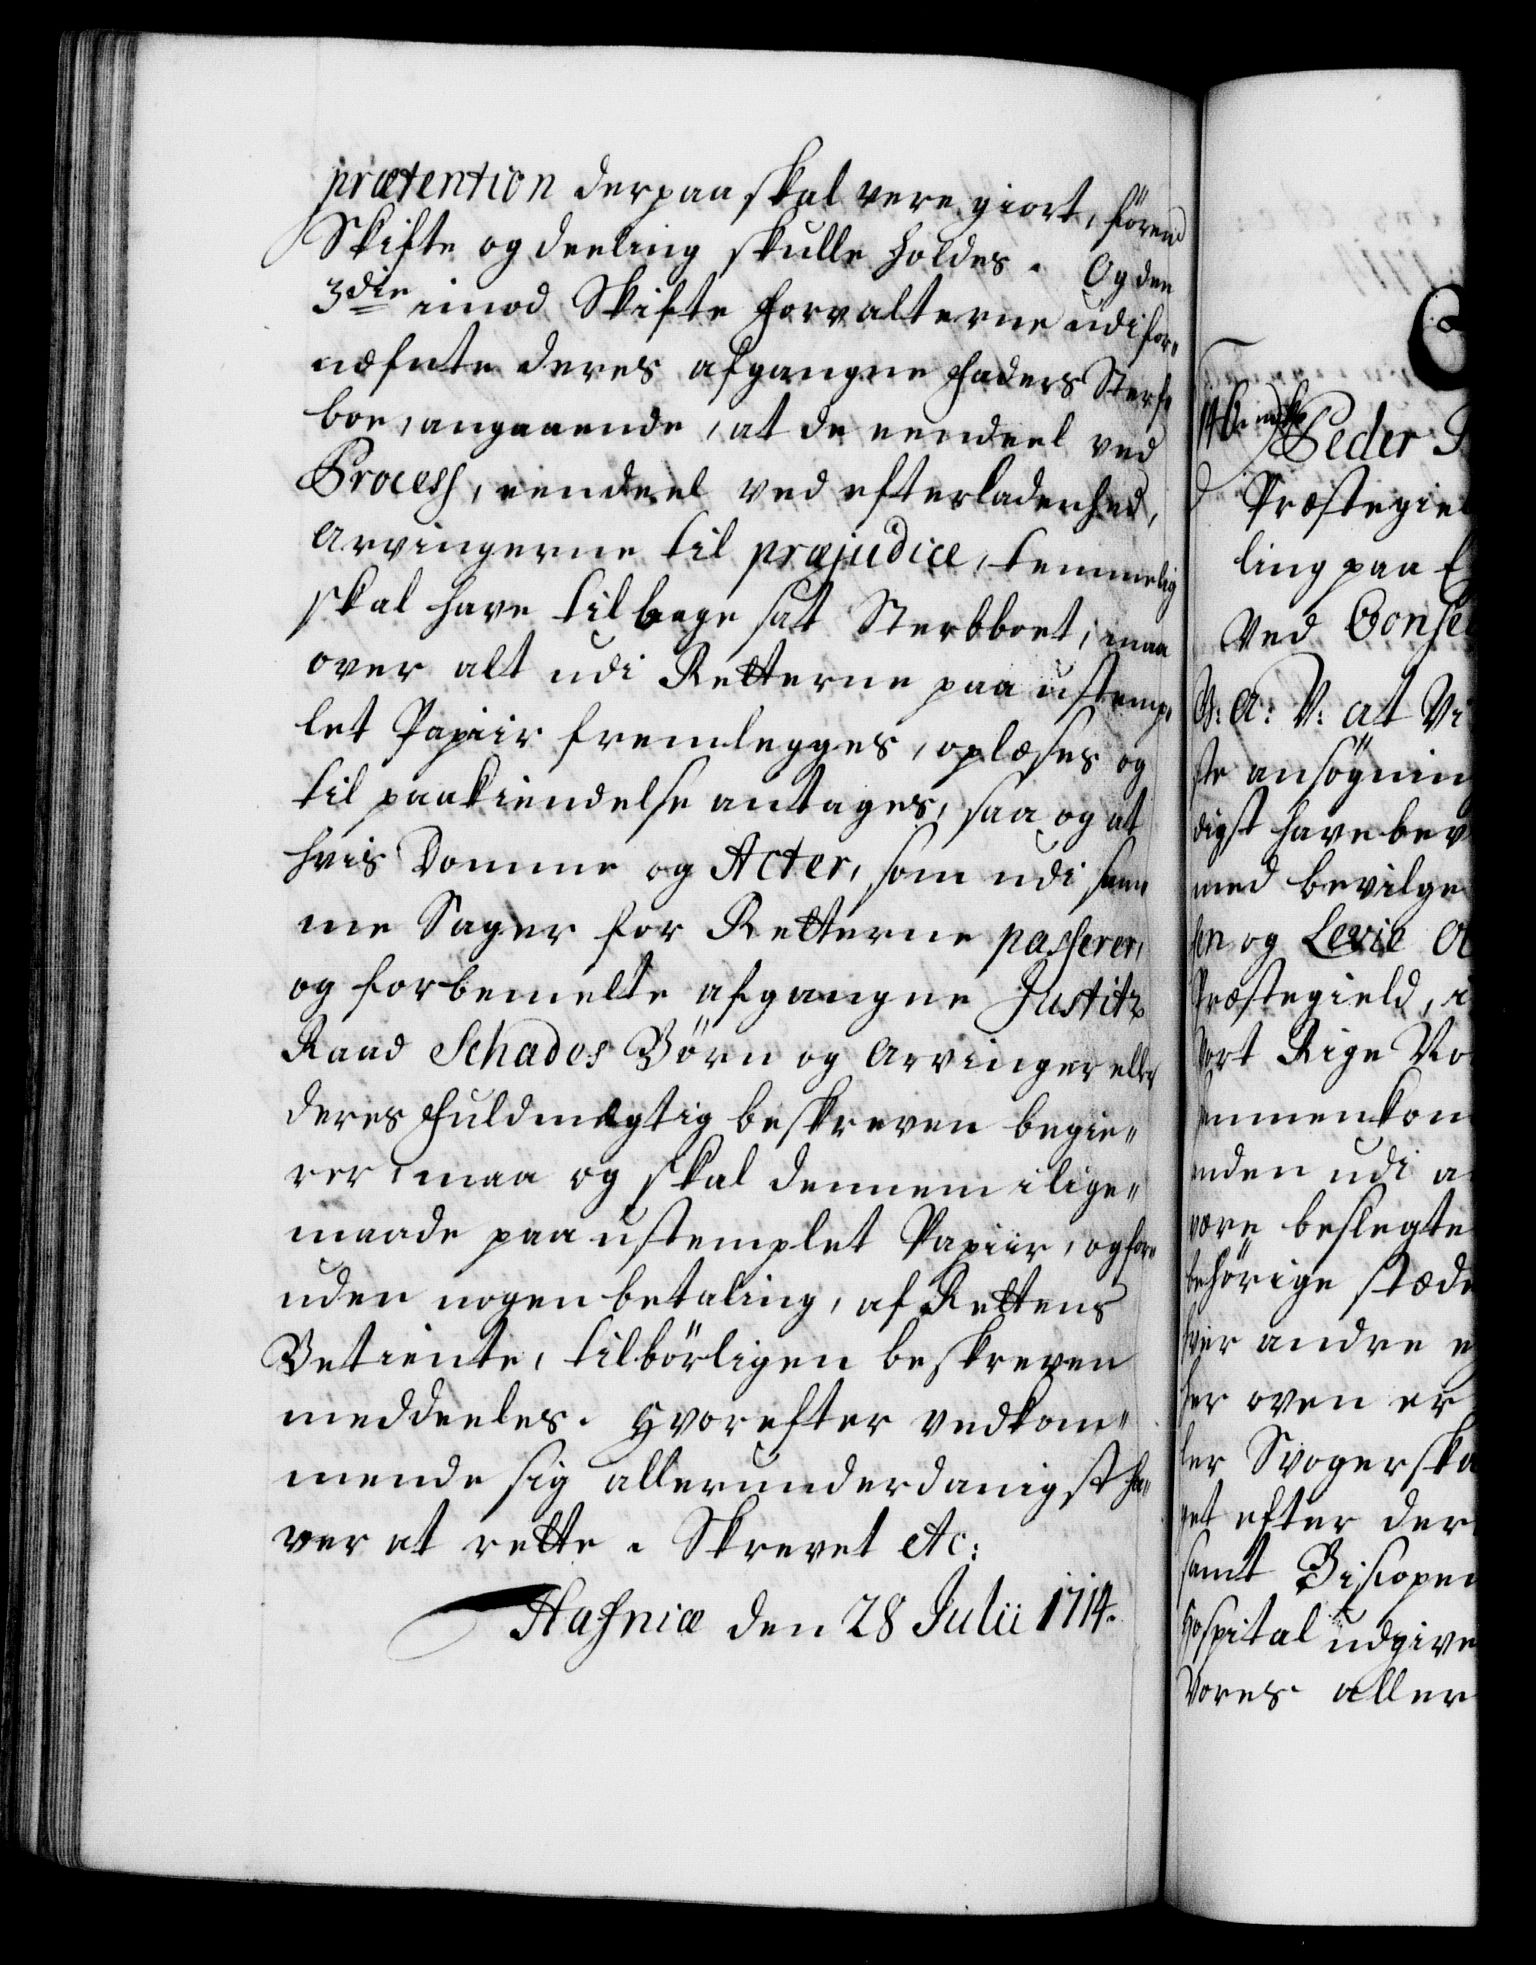 prætention derpaa skal vere giort, förend
Skifte og deeling skulle holdes. Og den
3die imod Skifte Forvalterne udi for„
nefnte deres afgangne Faders Sterf„
boe, angaaende, at de eendeel ved
Process, eendeel ved efterladenhed,
Arvingerne til præjudice, temmelig
skal have tilbage sat Sterbboet, maa
over alt udi Retterne paa ustemp„
let Papiir fremlegges, oplæses og
til paakiendelse antages, saa og at
hvis Domme og Acter, som udi sam„
me Sager for Retterne passerer,
og forbemelte afgangne Justitz
Raad Schades Börn og Arvinger eller
deres Fuldmegtig beskreven begie„
rer, maa og skal dennem i lige„
maade paa ustemplet Papiir, og for
uden nogen betaling, af Rettens
Betiente, tilbörligen beskreven
meddeeles. Hvorefter vedkom„
mende sig allerunderdanigst ha„
ver at rette. Skrevet etc:
Hafniæ den 28 Julii 1714.
Peder
Præstegiel
ling paa
Ved Conse
G: A: V: at Vi
ste ansögnin
digst have bev
med bevilge
sen og Levie
Præstegield, i
Vort Rige No
ammenkom
anden udi a
vere beslegte
behörige stæde
hver andre
her oven er
ler Svogerska
get efter der
samt Biscopen
Hospital udgive
Vores aller